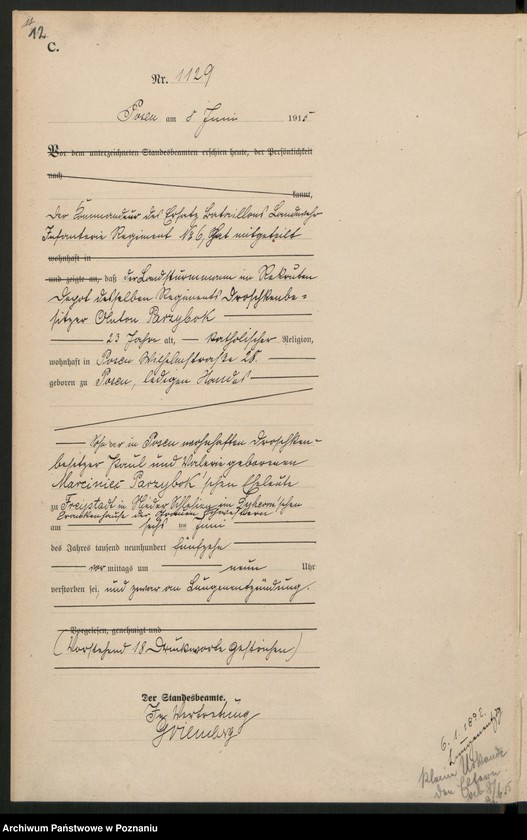 12
C.
Nr. 1129
Posen am 8 Juni 1915
Vor dem unterzeichneten Standesbeamten erschien heute, der Persönlichkeit
nach
kannt,
Der Kommandeur des Ersatz Bataillons Landwehr
Infanterie Regiment No 6, hat mitgeteilt
wohnhaft in
und zeigte an, daß der Landsturmmann im Rekruten
Depot desselben Regiments Droschkenbe=
sitzer Anton Parzybok
23 Jahre alt, katholischer Religion,
wohnhaft in Posen Wilhelmstraße 28.
geboren zu Posen, ledigen Standes
Sohn der in Posen wohnhaften Droschken-
besitzer Paul und Valerie geborenen
Marciniec Parzybok'schen Eheleute
zu Freystadt in Nieder Schlesien im
Krankenhause der Grauen Schwestern
am sechs ten Juni
des Jahres tausend neunhundert fünfzehn
vor mittags um neun Uhr
verstorben sei, und zwar an Lungenentzündung.
Vorgelesen, genehmigt und
(Vorstehend 18 Druckworte gestrichen.)
Der Standesbeamte.
In Vertretung
6. 1. 1892.
Klein Urkunde
den Eltern
Archiwum Państwowe w Poznaniu